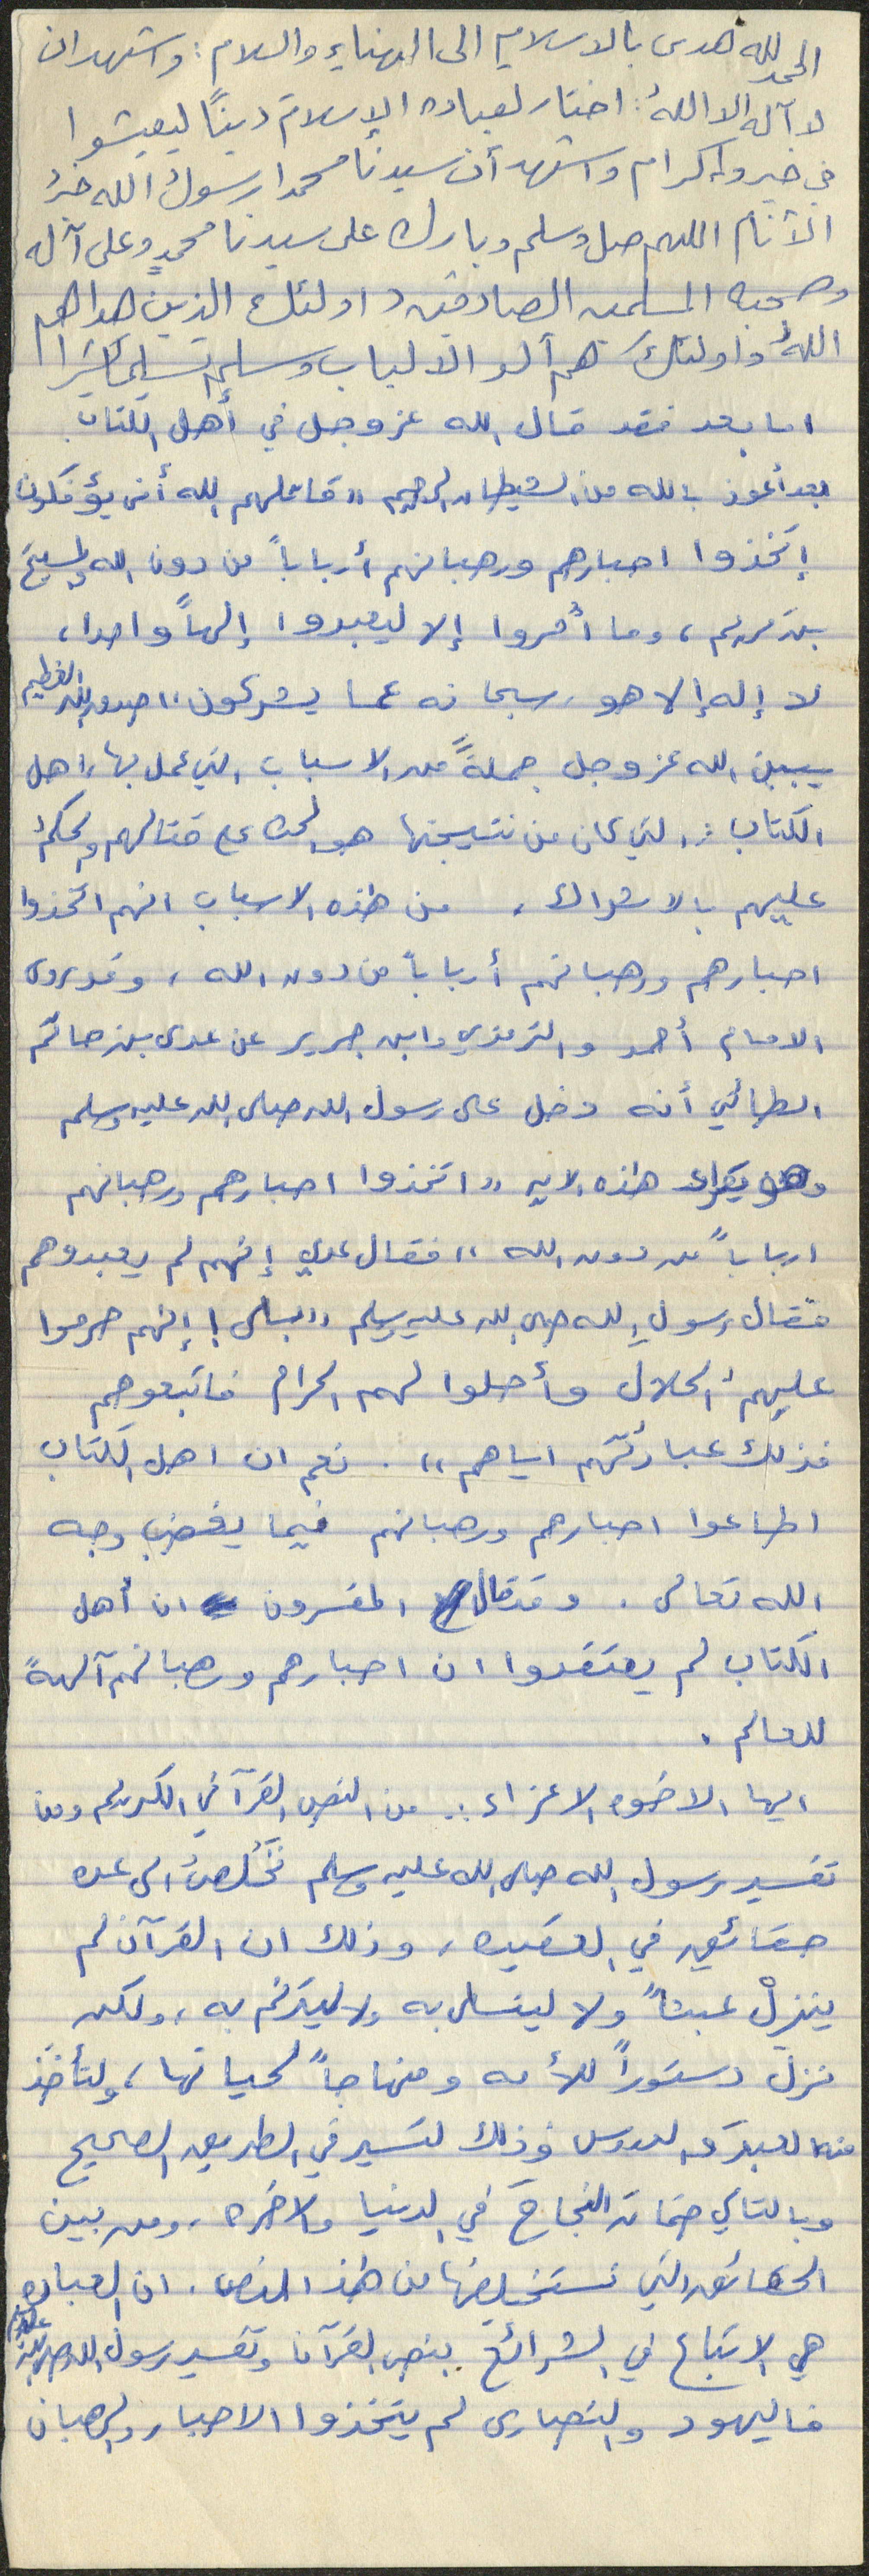 الحمد لله هدى بالاسلام الى الهناء والسلام : واشهد ان
لا آله الا اللهُ : اختار لعباده الإسلامَ دينًا ليعيشوا
في خير واكرام واشهد أن سيدنا محمدا رسولُ الله خيرُ
الأنام اللهم صل وسلم وبارك على سيدنا محمدٍ وعلى آله
وصحبه المسلمين الصادقين د اولئك الذين هداهم
اللهُ واولئكَ هم آلو الالباب وسلم تسليما كثيرًا
اما بعد فقد قال الله عز وجل في أهل الكتاب
بعد أعوذ بالله من الشيطان الرجيم " قاتلهم الله أنى يؤفكون
إتخذوا احبارهم ورهبانهم أرباباً من دون الله والمسيحَ
بن مريم ، وما أُمروا إلا ليعبدوا إلهاً واحدا ،
لا إله إلا هو ، سبحانه عما يشركون " صدق الله العظيم
يبين الله عز وجل جملةً من الاسباب التي عمل بها اهل
الكتاب : التي كان من نتيجتها هو الحث على قتالهم والحكمُ
عليهم بالاشراك ، من هذه الاسباب انهم اتخذوا
احبارهم ورهبانهم أرباباً من دون الله ، وقد روى
الامام أحمد والترمذي وابن جرير عن عدى بن حاتم
الطائي أنه دخل على رسول الله صلى الله عليه وسلم
وهو يقراء هذه الايه " اتخذوا احبارهم ورهبانهم
ارباباً من دون الله " فقال عدي إنهم لم يعبدوهم
فقال رسول الله صلى الله عليه وسلم " بلى ! إنهم حرموا
عليهمُ الحلال وأحلوا لهم الحرام فاتبعوهم
فذلك عبادتُهم اياهم " . نعم ان اهل الكتاب
اطاعوا احبارهم ورهبانهم فيما يغضب وجه
الله تعالى . وقد قال المفسرون ان أهل
الكتاب لم يعتقدوا ان احبارهم ورهبانهم آلهةً
للعالم .
ايها الاخوه الاعزاء : من النص القرآني الكريم ومن
تفسير رسول الله صلى الله عليه وسلم نَخْلُصُ الى عده
حقائق في العقيده ، وذلك ان القرآن لم
ينزلْ عبثاً ولا ليتسلى به ولا ليترنم به ، ولكن
نزل دستوراً للأمه ومنهاجاً لحياتها ، ولتأخذَ
منه العبرَ والدروس وذلك لتسير في الطريق الصحيح
وبالتالي ضمانة النجاحَ في الدنيا والاخره ، ومن بين
الحقائق التي نستخلصها من هذا النص . ان العباده
هي الاتباع في الشرائع بنص القرآن وتفسير رسول الله صلى الله عليه وسلم
فاليهود والنصارى لم يتخذوا الاحبار والرهبان